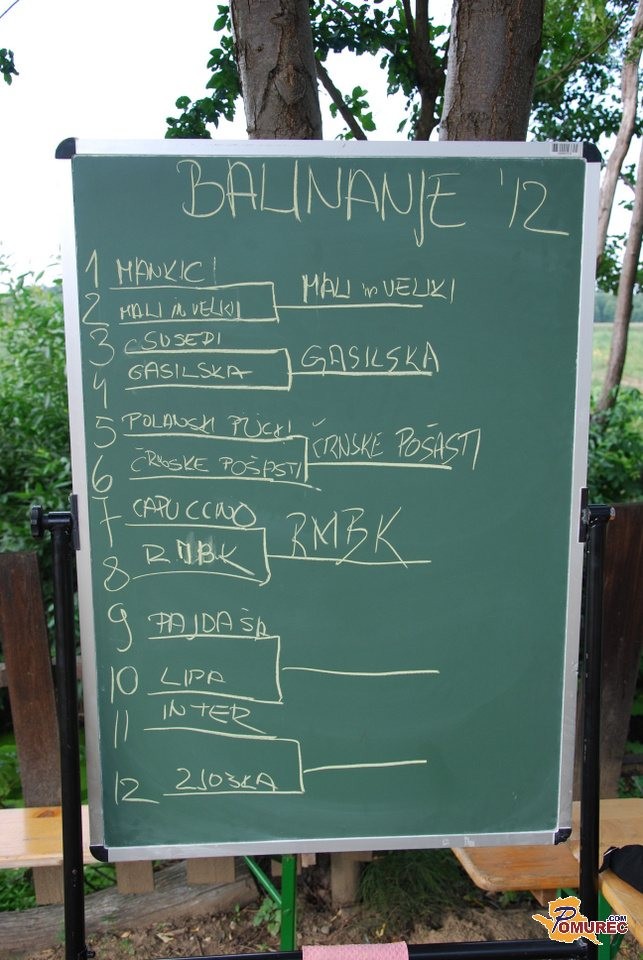 BALINANJE '12
1 MANKICI
2 MALI in VELIKI
MALI in VELIKI
3 SUSEDI
4 GASILSKA
GASILSKA
5 POLANSKI PÜCKI
6 ČRNSKE POŠASTI
ČRNSKE POŠASTI
7 CAPUCCINO
8 RMBK
RMBK
9 PAJDAŠI
10 LIPA
11 INTER
12 ZJOŠKA
POMUREC.COM